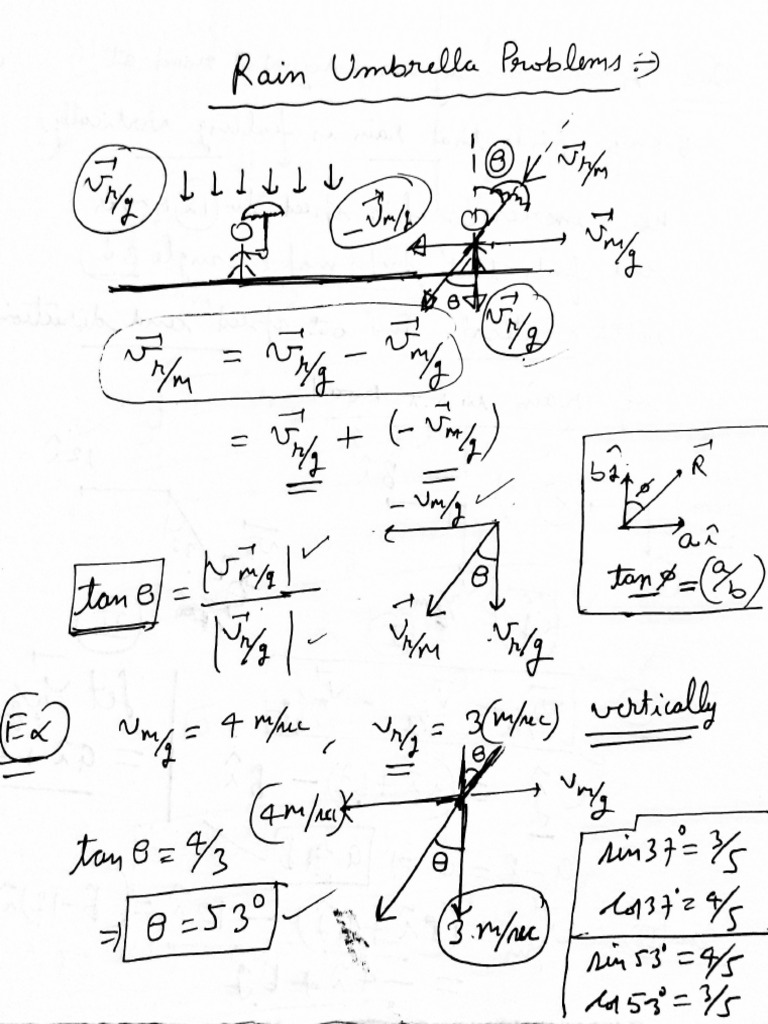 Rain Umbrella Problems :→
v⃗r/g
↓ ↓ ↓ ↓ ↓ ↓
-v⃗m/g
θ
v⃗r/m
v⃗m/g
θ
v⃗r/g
v⃗r/m = v⃗r/g - v⃗m/g
= v⃗r/g + (- v⃗m/g)
- vm/g ✓
bĵ
φ
R⃗
aî
tan φ = (a/b)
tan θ = |v⃗m/g| ✓
|v⃗r/g| ✓
θ
v⃗r/m
v⃗r/g
Ex
vm/g = 4 m/sec , vr/g = 3(m/sec) vertically
θ
(4m/sec)
vm/g
tan θ = 4/3
θ
⇒ θ = 53° ✓
3 m/sec
sin 37° = 3/5
cos 37° = 4/5
sin 53° = 4/5
cos 53° = 3/5